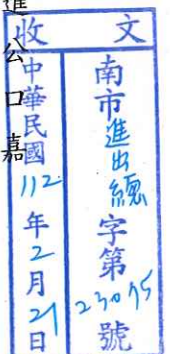 收文
南市進出總字第號
中華民國112年2月21日
進
公
口
嘉